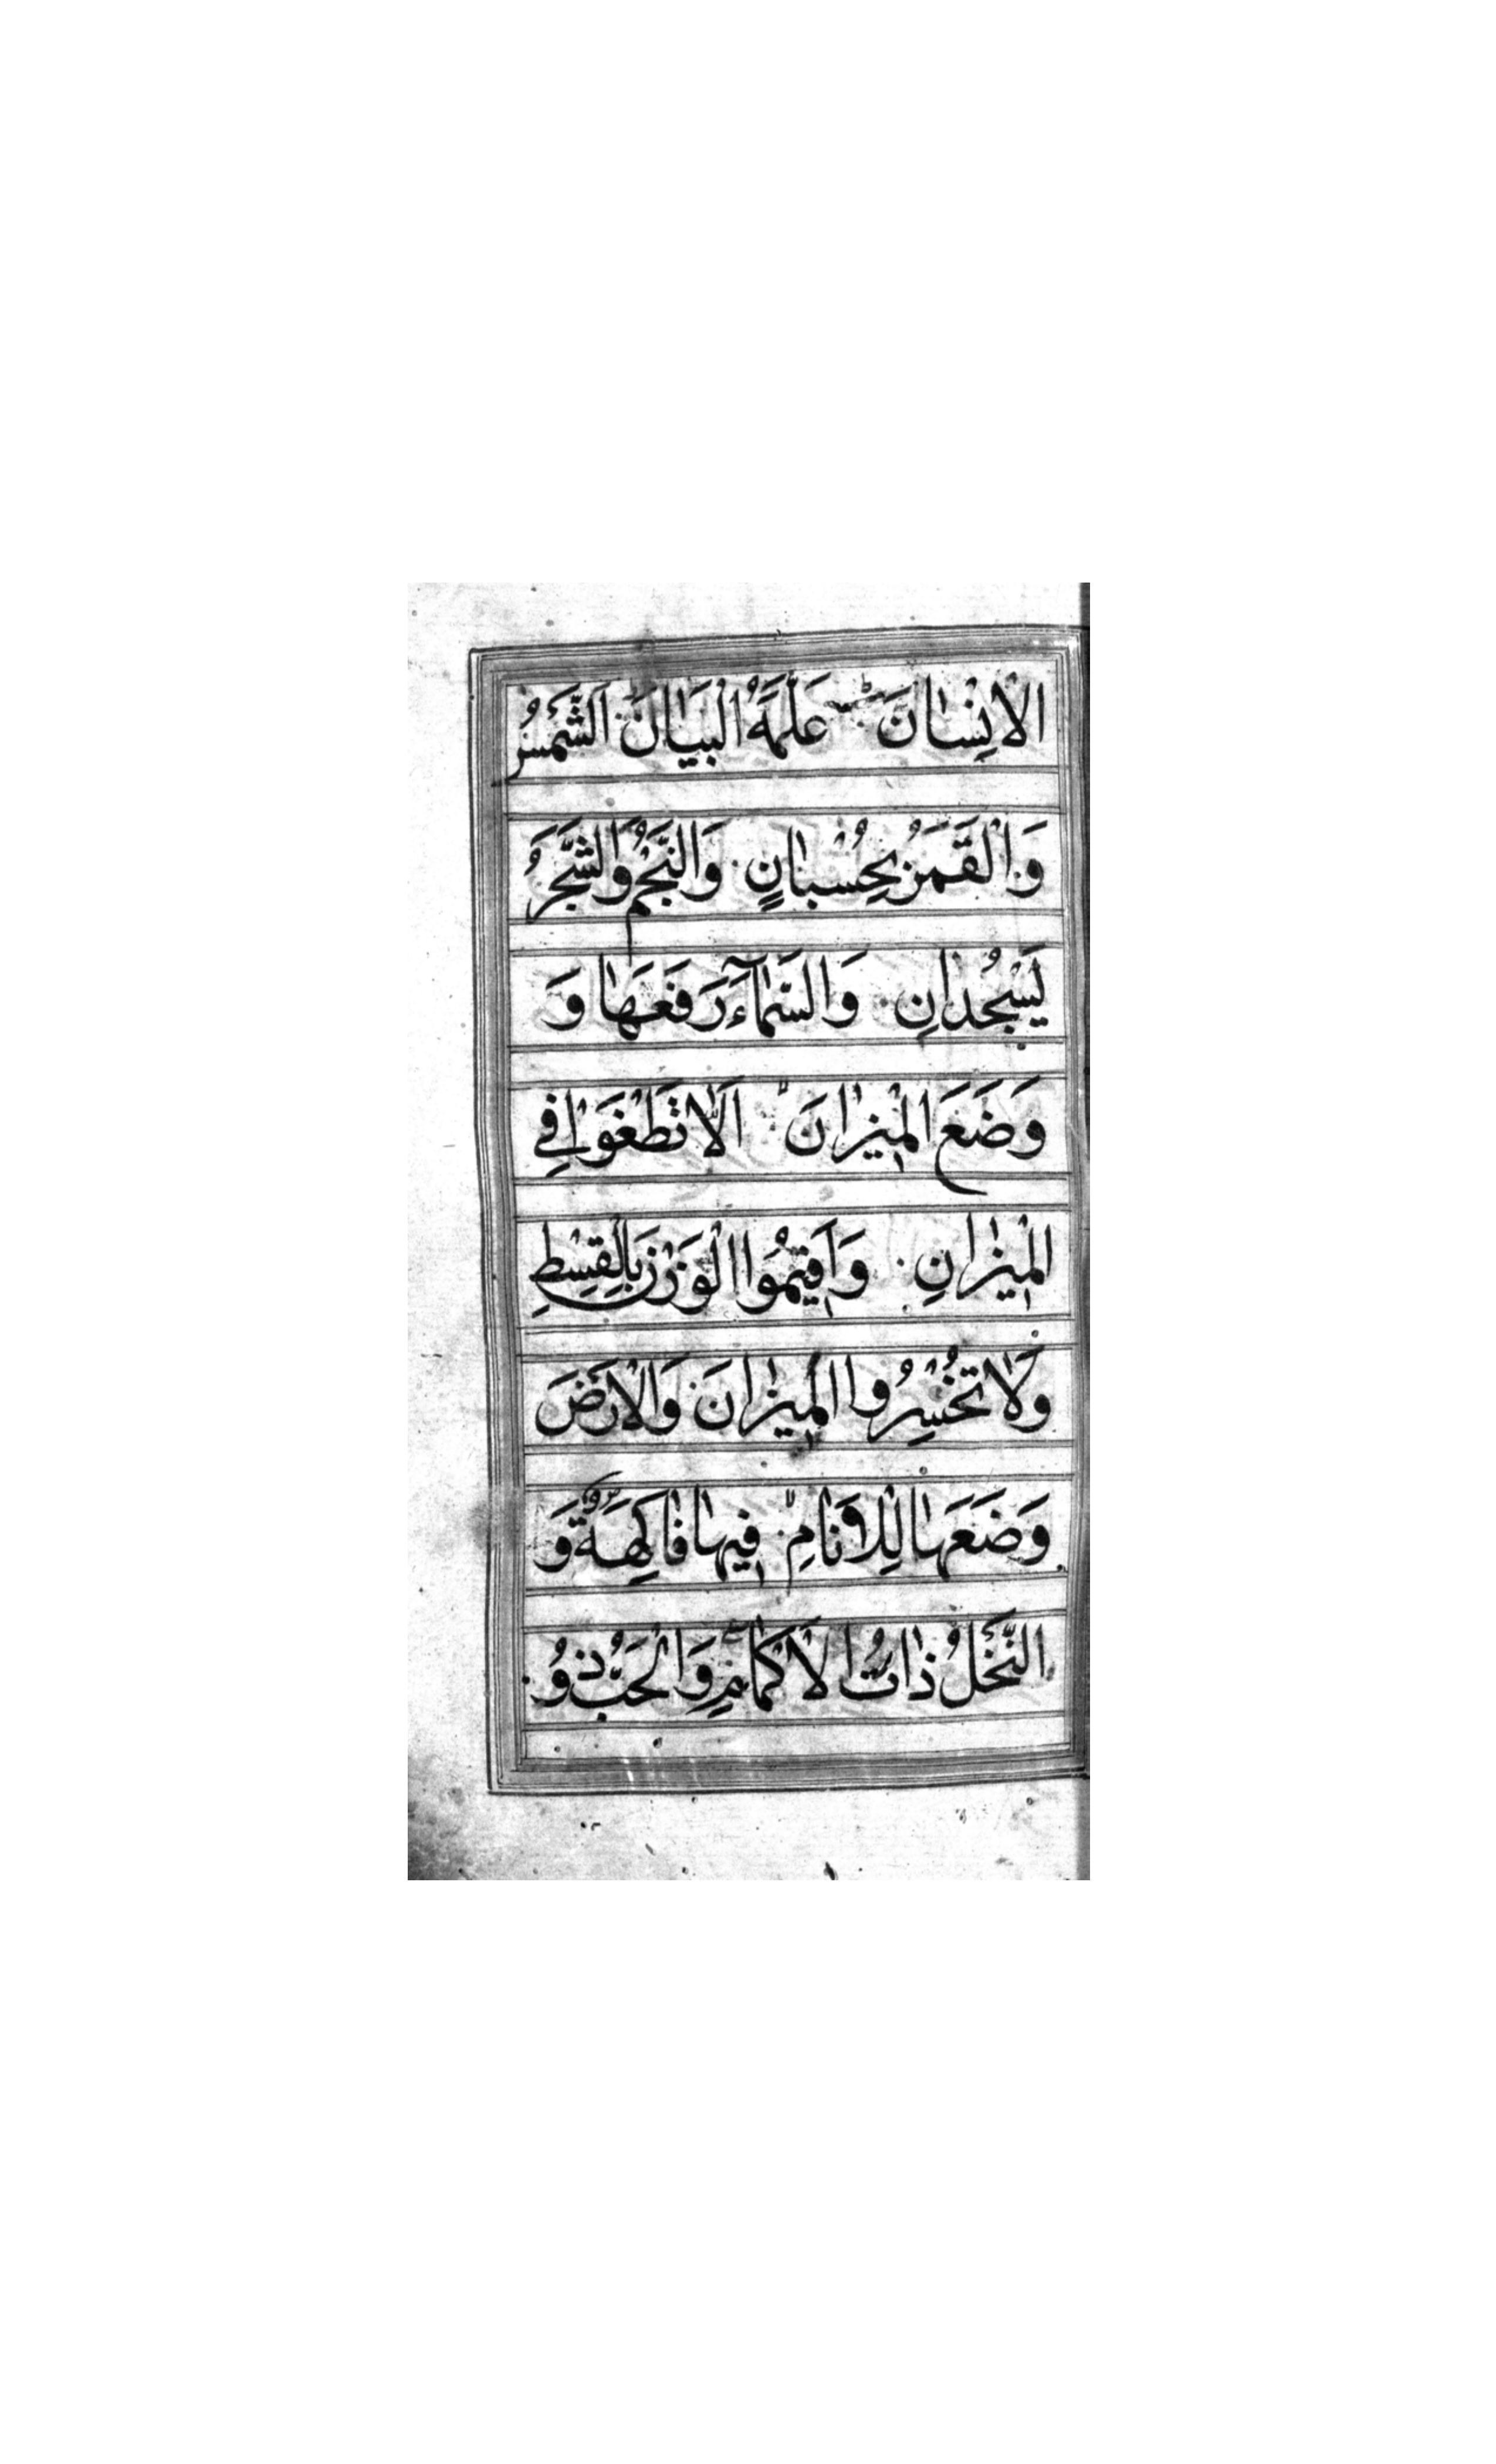 الْاِنْسَانَ عَلَّمَهُ الْبَيَانَ اَلشَّمْسُ
وَالْقَمَرُ بِحُسْبَانٍ وَالنَّجْمُ وَالشَّجَرُ
يَسْجُدَانِ وَالسَّمَآءَ رَفَعَهَا وَ
وَضَعَ الْمِيزَانَ اَلَّا تَطْغَوْا فِي
الْمِيزَانِ وَاَقِيمُوا الْوَزْنَ بِالْقِسْطِ
وَلَا تُخْسِرُوا الْمِيزَانَ وَالْاَرْضَ
وَضَعَهَا لِلْاَنَامِ فِيهَا فَاكِهَةٌ وَ
النَّخْلُ ذَاتُ الْاَكْمَامِ وَالْحَبُّ ذُو